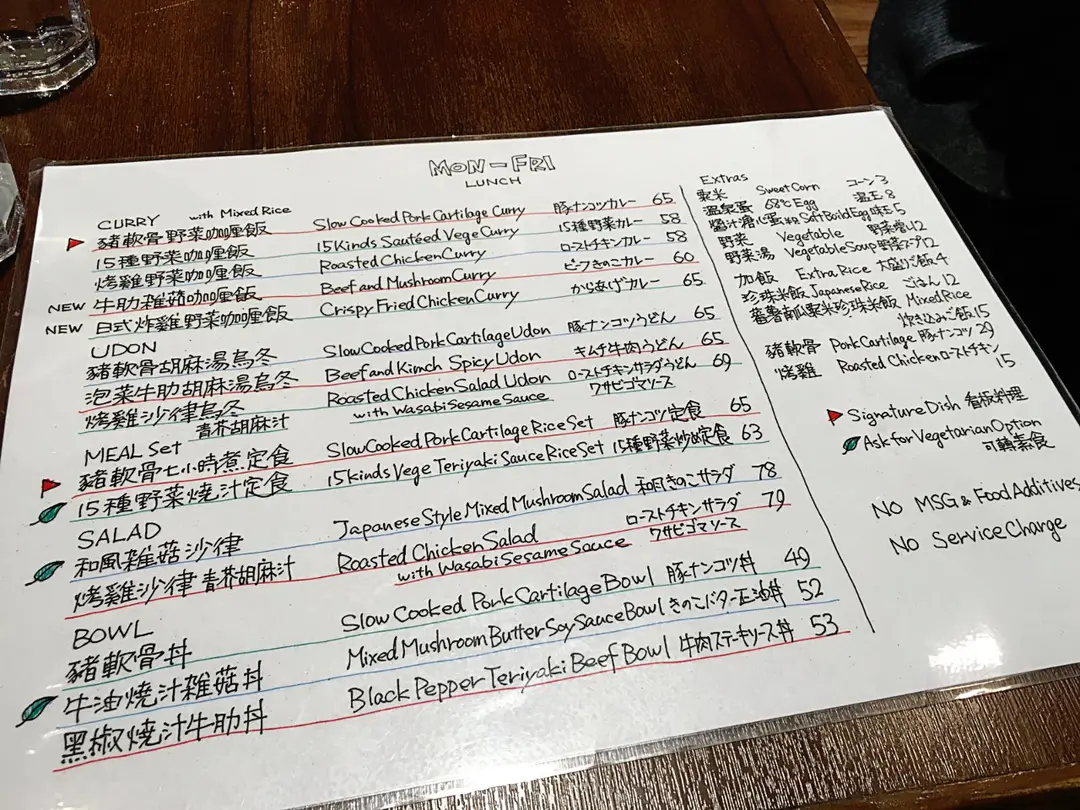 MON-FRI
LUNCH
CURRY with Mixed Rice
豬軟骨野菜咖喱飯 Slow Cooked Pork Cartilage Curry 豚ナンコツカレー 65
15種野菜咖喱飯 15 Kinds Sautéed Vege Curry 15種野菜カレー 58
烤雞野菜咖喱飯 Roasted Chicken Curry ローストチキンカレー 58
NEW 牛肋雑菇咖喱飯 Beef and Mushroom Curry ビーフきのこカレー 60
NEW 日式炸雞野菜咖喱飯 Crispy Fried Chicken Curry からあげカレー 65
UDON
豬軟骨胡麻湯烏冬 Slow Cooked Pork Cartilage Udon 豚ナンコツうどん 65
泡菜牛肋胡麻湯烏冬 Beef and Kimch Spicy Udon キムチ牛肉うどん 65
烤雞沙律烏冬 Roasted Chicken Salad Udon ローストチキンサラダうどん 69
青芥胡麻汁 with Wasabi Sesame Sauce ワサビゴマソース
MEAL Set
豬軟骨七小時煮定食 Slow Cooked Pork Cartilage Rice Set 豚ナンコツ定食 65
15種野菜燒汁定食 15 kinds Vege Teriyaki Sauce Rice Set 15種野菜炒め定食 63
SALAD
和風雑菇沙律 Japanese Style Mixed Mushroom Salad 和風きのこサラダ 78
烤雞沙律 青芥胡麻汁 Roasted Chicken Salad ローストチキンサラダ 79
with Wasabi Sesame Sauce ワサビゴマソース
BOWL
豬軟骨丼 Slow Cooked Pork Cartilage Bowl 豚ナンコツ丼 49
牛油燒汁雑菇丼 Mixed Mushroom Butter Soy Sauce Bowl きのこバター正油丼 52
黑椒燒汁牛肋丼 Black Pepper Teriyaki Beef Bowl 牛肉ステーキソース丼 53
Extras
粟米 Sweet Corn コーン 3
温泉蛋 68℃ Egg 温玉 8
醬汁溏心蛋 Soft Boild Egg 味玉 5
野菜 Vegetable 野菜増し 12
野菜湯 Vegetable Soup 野菜スープ 12
加飯 Extra Rice 大盛り飯 4
珍珠米飯 Japanese Rice ごはん 12
蕃薯南瓜粟米珍珠米飯 Mixed Rice
炊き込みご飯 15
豬軟骨 Pork Cartilage 豚ナンコツ 29
烤雞 Roasted Chicken ローストチキン
15
Signature Dish 看板料理
Ask for Vegetarian Option
可轉素食
NO MSG & Food Additives
NO Service Charge